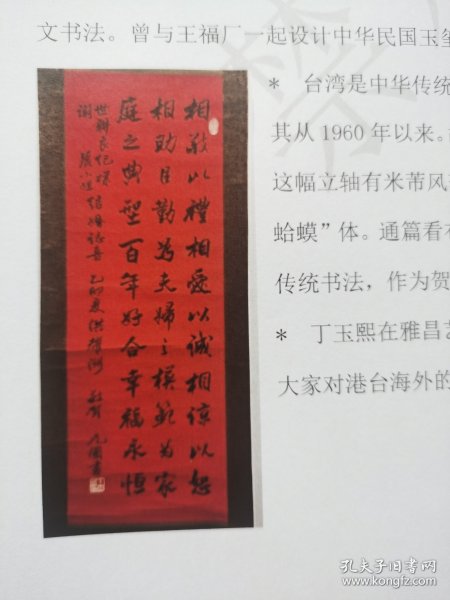 文书法。曾与王福厂一起设计中华民国玉玺
* 台湾是中华传统
其从1960年以来。
这幅立轴有米芾风
蛤蟆”体。通篇看有
传统书法，作为贺
* 丁玉熙在雅昌艺
大家对港台海外的
相敬以禮相愛以誠相諒以恕
相助且勤為夫婦之模範為家
庭之典型百年好合幸福永恒
世聯良
小姐結婚誌喜
乙卯夏洪
敬賀
孔夫子旧书网
www.kongfz.com